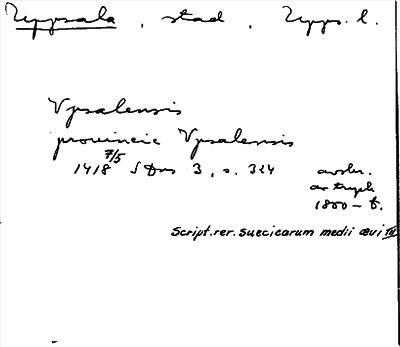 Uppsala, stad, Upps. l.
Vpsalensis
prouincie Vpsalensis
1418 7/5 SDns 3, s. 324 avskr.
av tryck
1800-t.
Script. rer. suecicarum medii ævi III